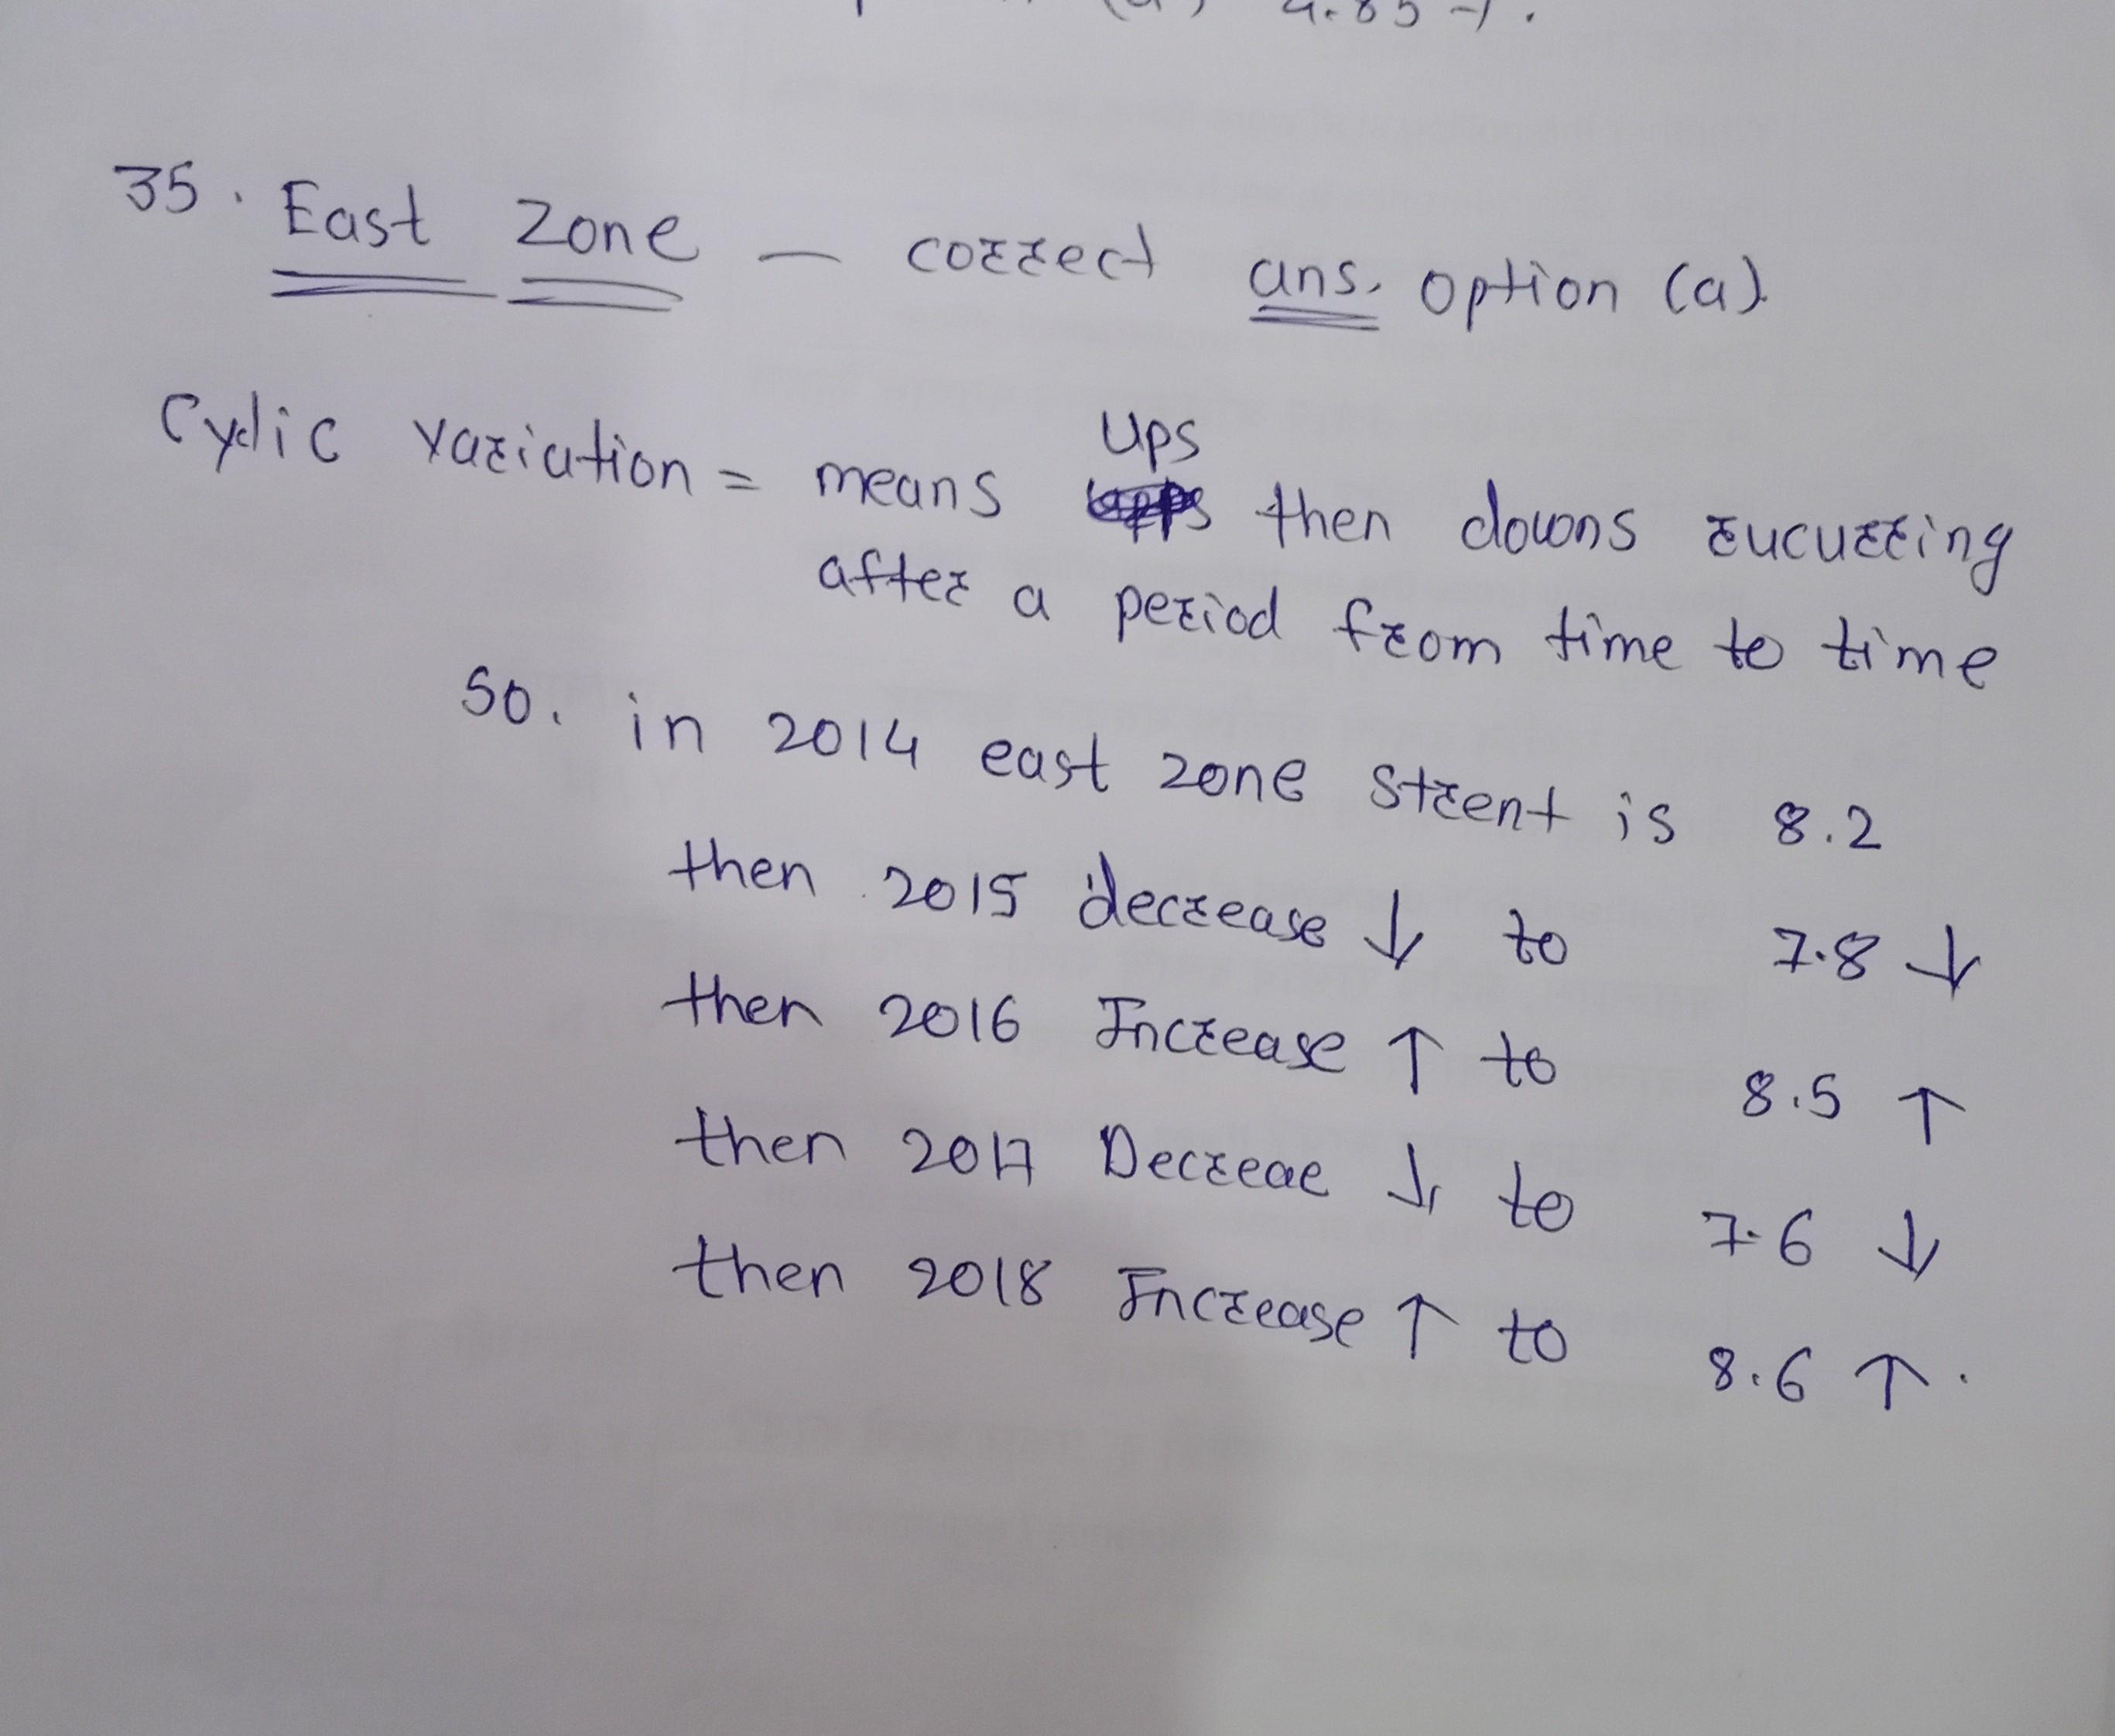 (a) 4.85
35. East Zone — correct ans. option (a).
Cyclic variation = means Ups then downs rucurring
after a period from time to time
So. in 2014 east zone strent is 8.2
then 2015 decrease ↓ to 7.8 ↓
then 2016 Increase ↑ to 8.5 ↑
then 2017 Decreae ↓ to 7.6 ↓
then 2018 Increase ↑ to 8.6 ↑.